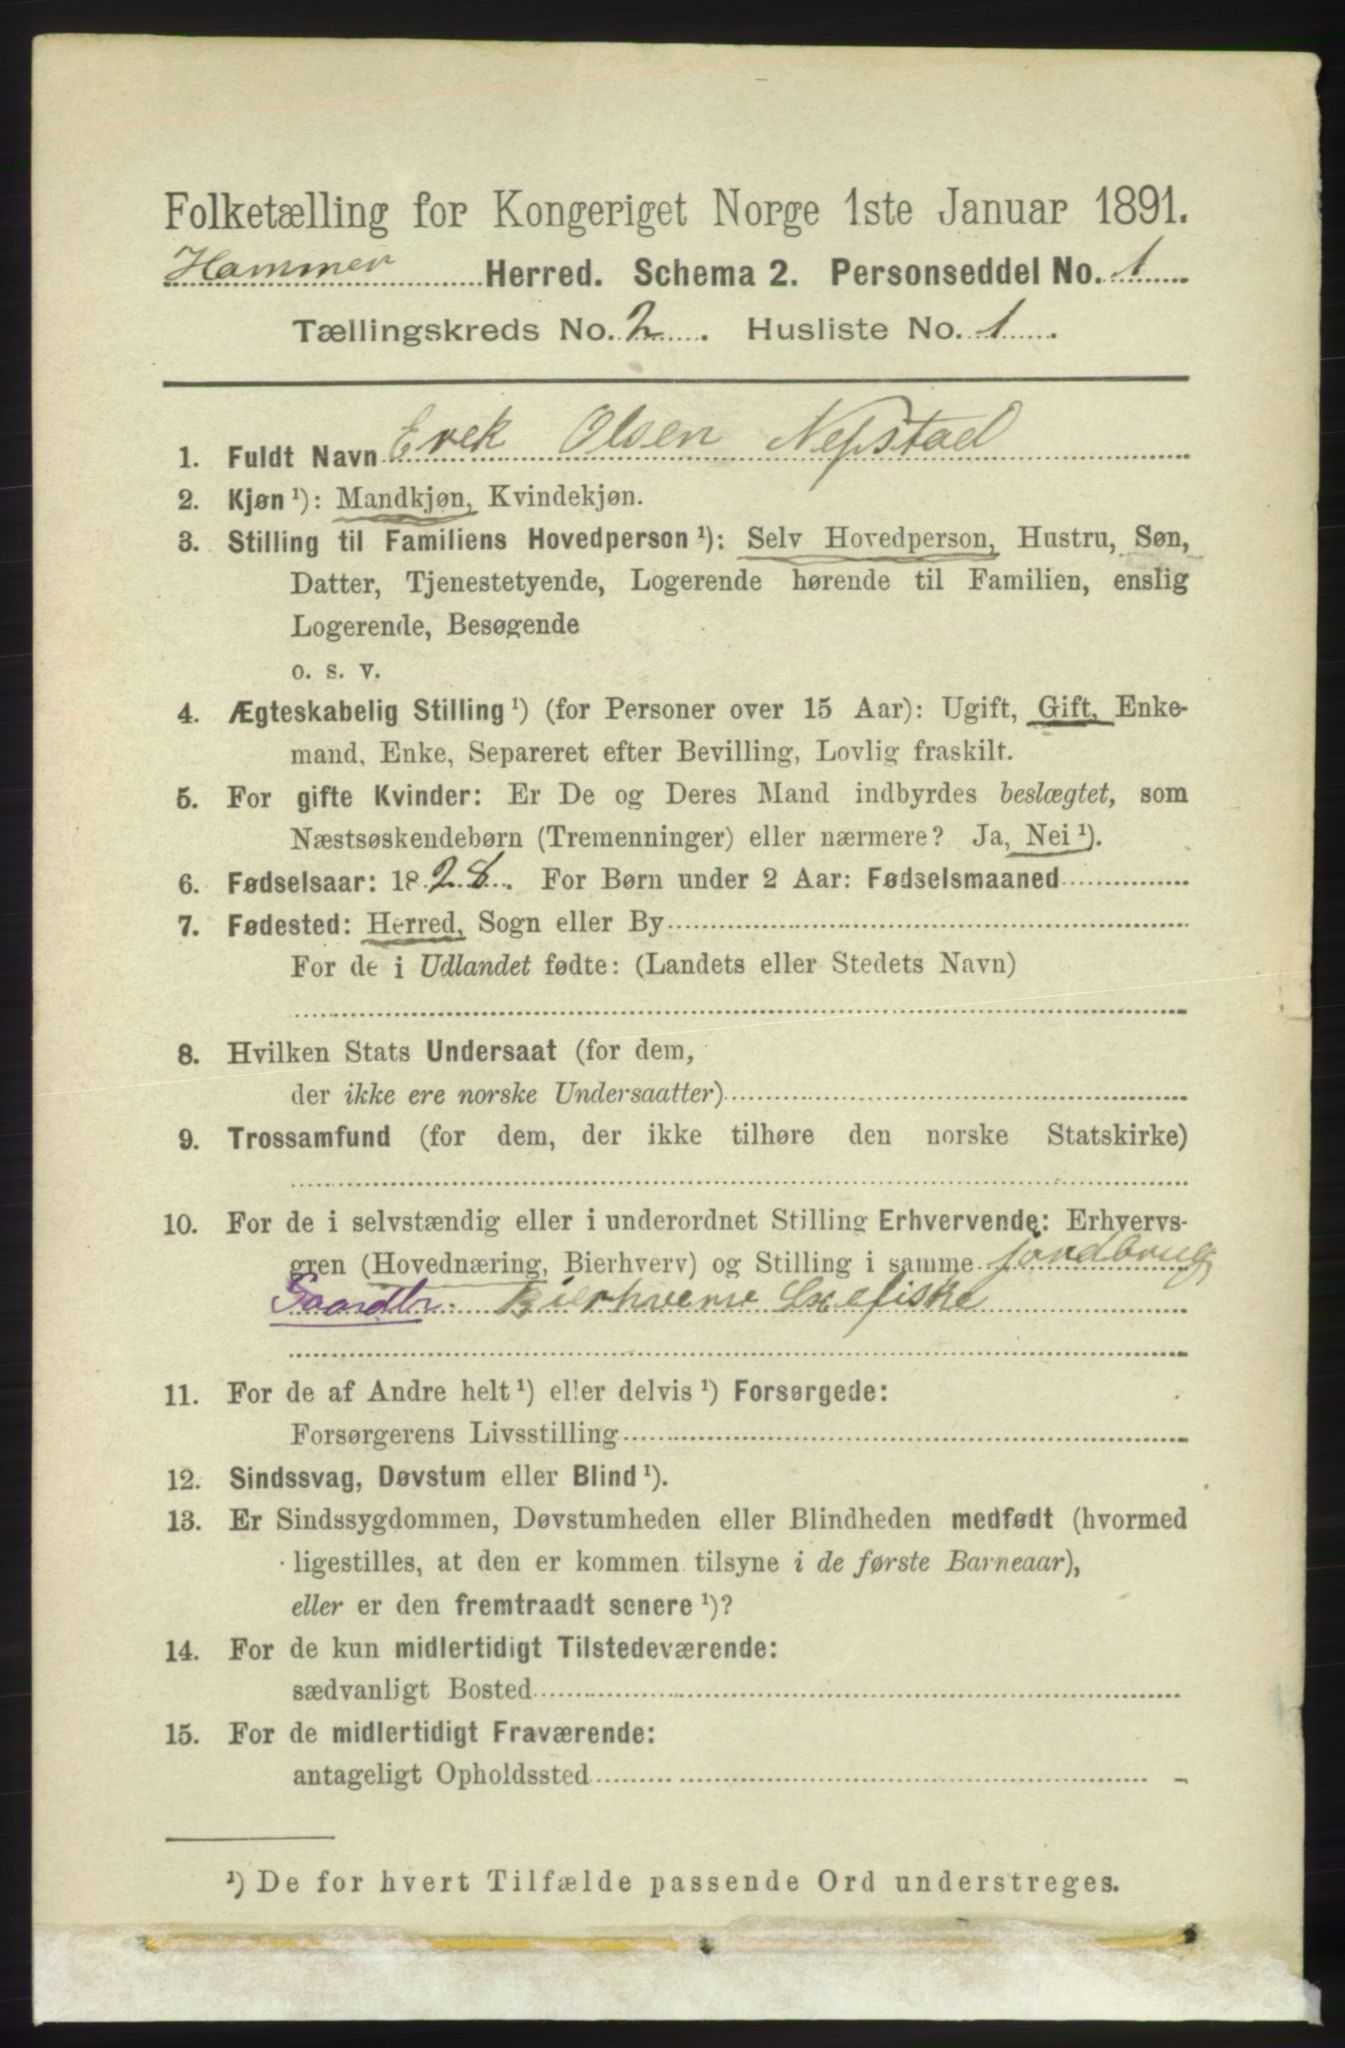 Folketælling for Kongeriget Norge 1ste Januar 1891.
Hammer Herred. Schema 2. Personseddel No. 1
Tællingskreds No. 2. Husliste No. 1.
1. Fuldt Navn Erek Olsen Nepstad
2. Kjøn ¹): Mandkjøn, Kvindekjøn.
3. Stilling til Familiens Hovedperson ¹): Selv Hovedperson, Hustru, Søn,
Datter, Tjenestetyende, Logerende hørende til Familien, enslig
Logerende, Besøgende
o. s. v.
4. Ægteskabelig Stilling ¹) (for Personer over 15 Aar): Ugift, Gift, Enke-
mand, Enke, Separeret efter Bevilling, Lovlig fraskilt.
5. For gifte Kvinder: Er De og Deres Mand indbyrdes beslægtet, som
Næstsøskendebørn (Tremenninger) eller nærmere? Ja, Nei ¹).
6. Fødselsaar: 1828. For Børn under 2 Aar: Fødselsmaaned
7. Fødested: Herred, Sogn eller By
For de i Udlandet fødte: (Landets eller Stedets Navn)
8. Hvilken Stats Undersaat (for dem,
der ikke ere norske Undersaatter)
9. Trossamfund (for dem, der ikke tilhøre den norske Statskirke)
10. For de i selvstændig eller i underordnet Stilling Erhvervende: Erhvervs-
gren (Hovednæring, Bierhverv) og Stilling i samme jordbrug
Gaardbr. Bierhverve
11. For de af Andre helt ¹) eller delvis ¹) Forsørgede:
Forsørgerens Livsstilling
12. Sindssvag, Døvstum eller Blind ¹).
13. Er Sindssygdommen, Døvstumheden eller Blindheden medfødt (hvormed
ligestilles, at den er kommen tilsyne i de første Barneaar),
eller er den fremtraadt senere ¹)?
14. For de kun midlertidigt Tilstedeværende:
sædvanligt Bosted
15. For de midlertidigt Fraværende:
antageligt Opholdssted
¹) De for hvert Tilfælde passende Ord understreges.